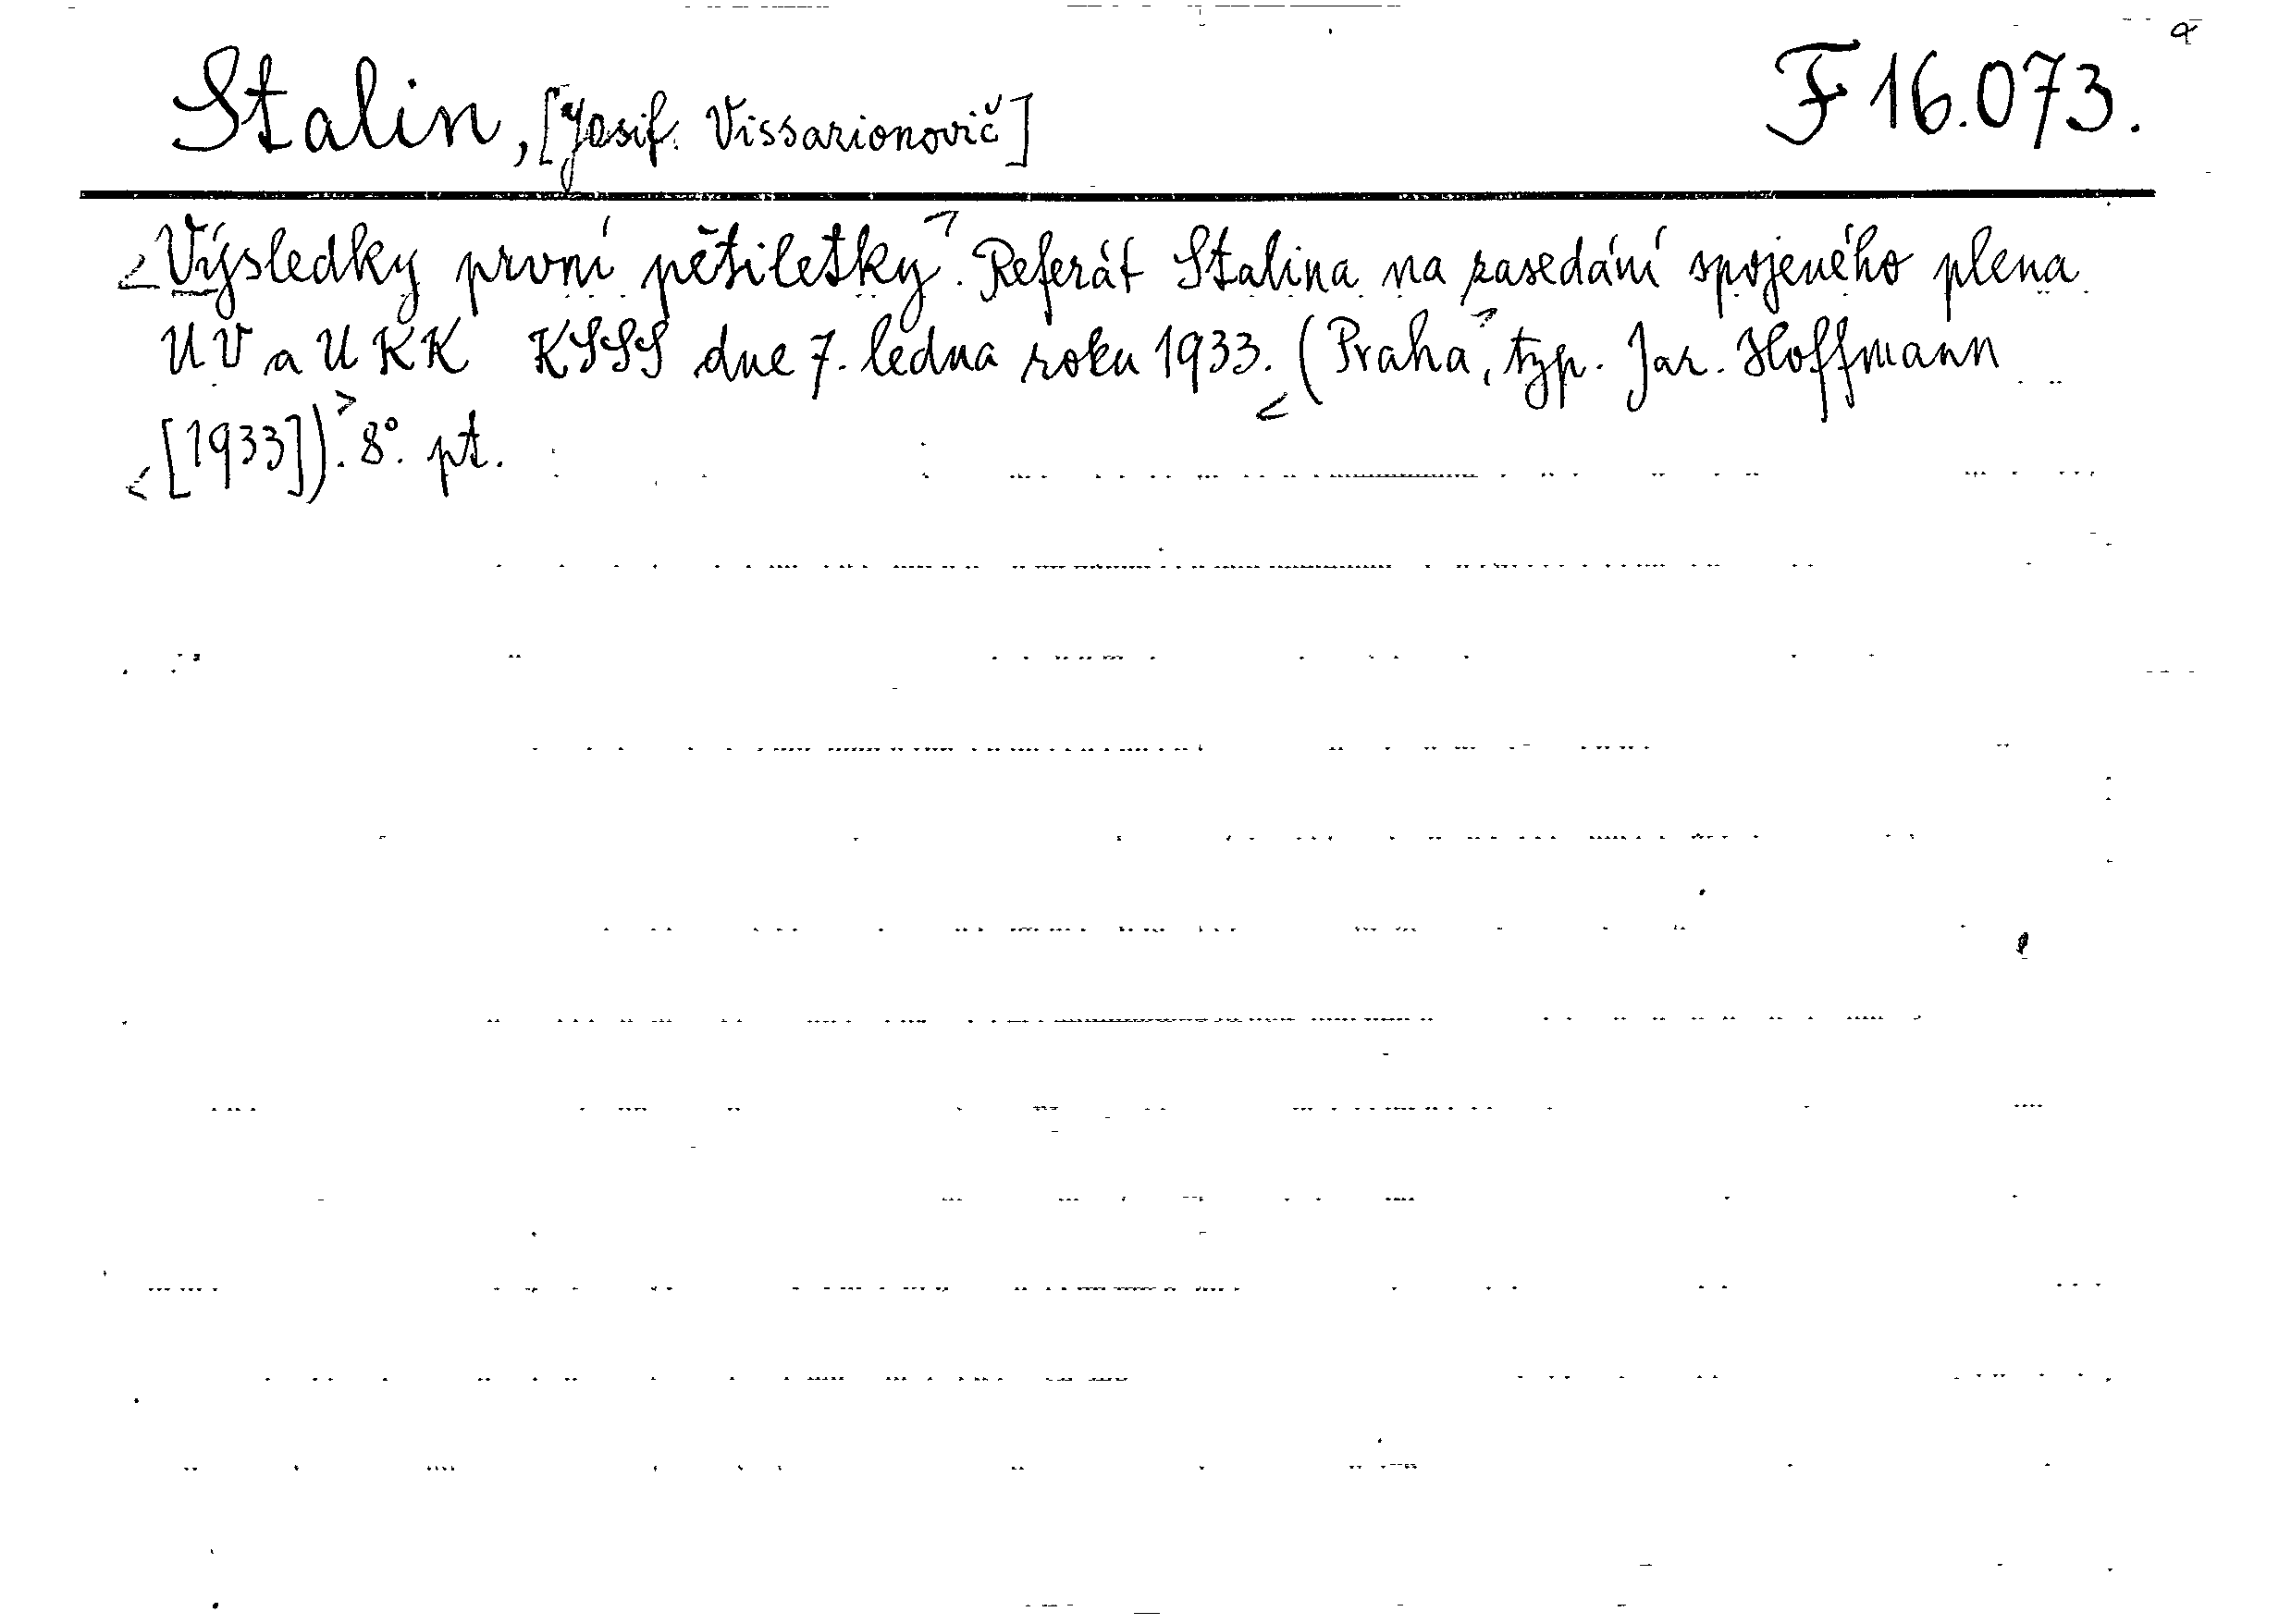 Stalin, [Josif. Vissarionovič] F 16.073.
<Výsledky první pětiletky>. Referát Stalina na zasedání spojeného plena
UV a UKK KSSS dne 7. ledna roku 1933. <(Praha>, typ. Jar. Hoffmann
<[1933])>. 8°. pt.